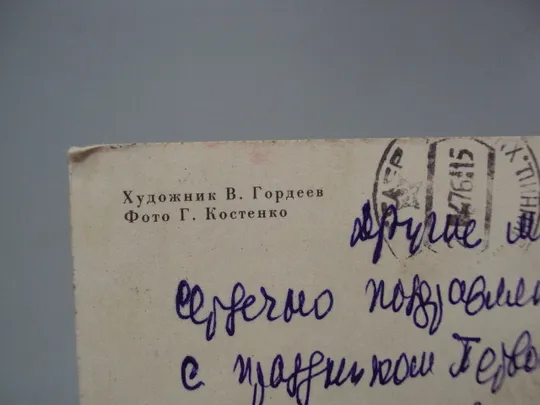 Художник В. Гордеев
Фото Г. Костенко
476 15
Другие м
сердечно поздравля
с праздником Перво